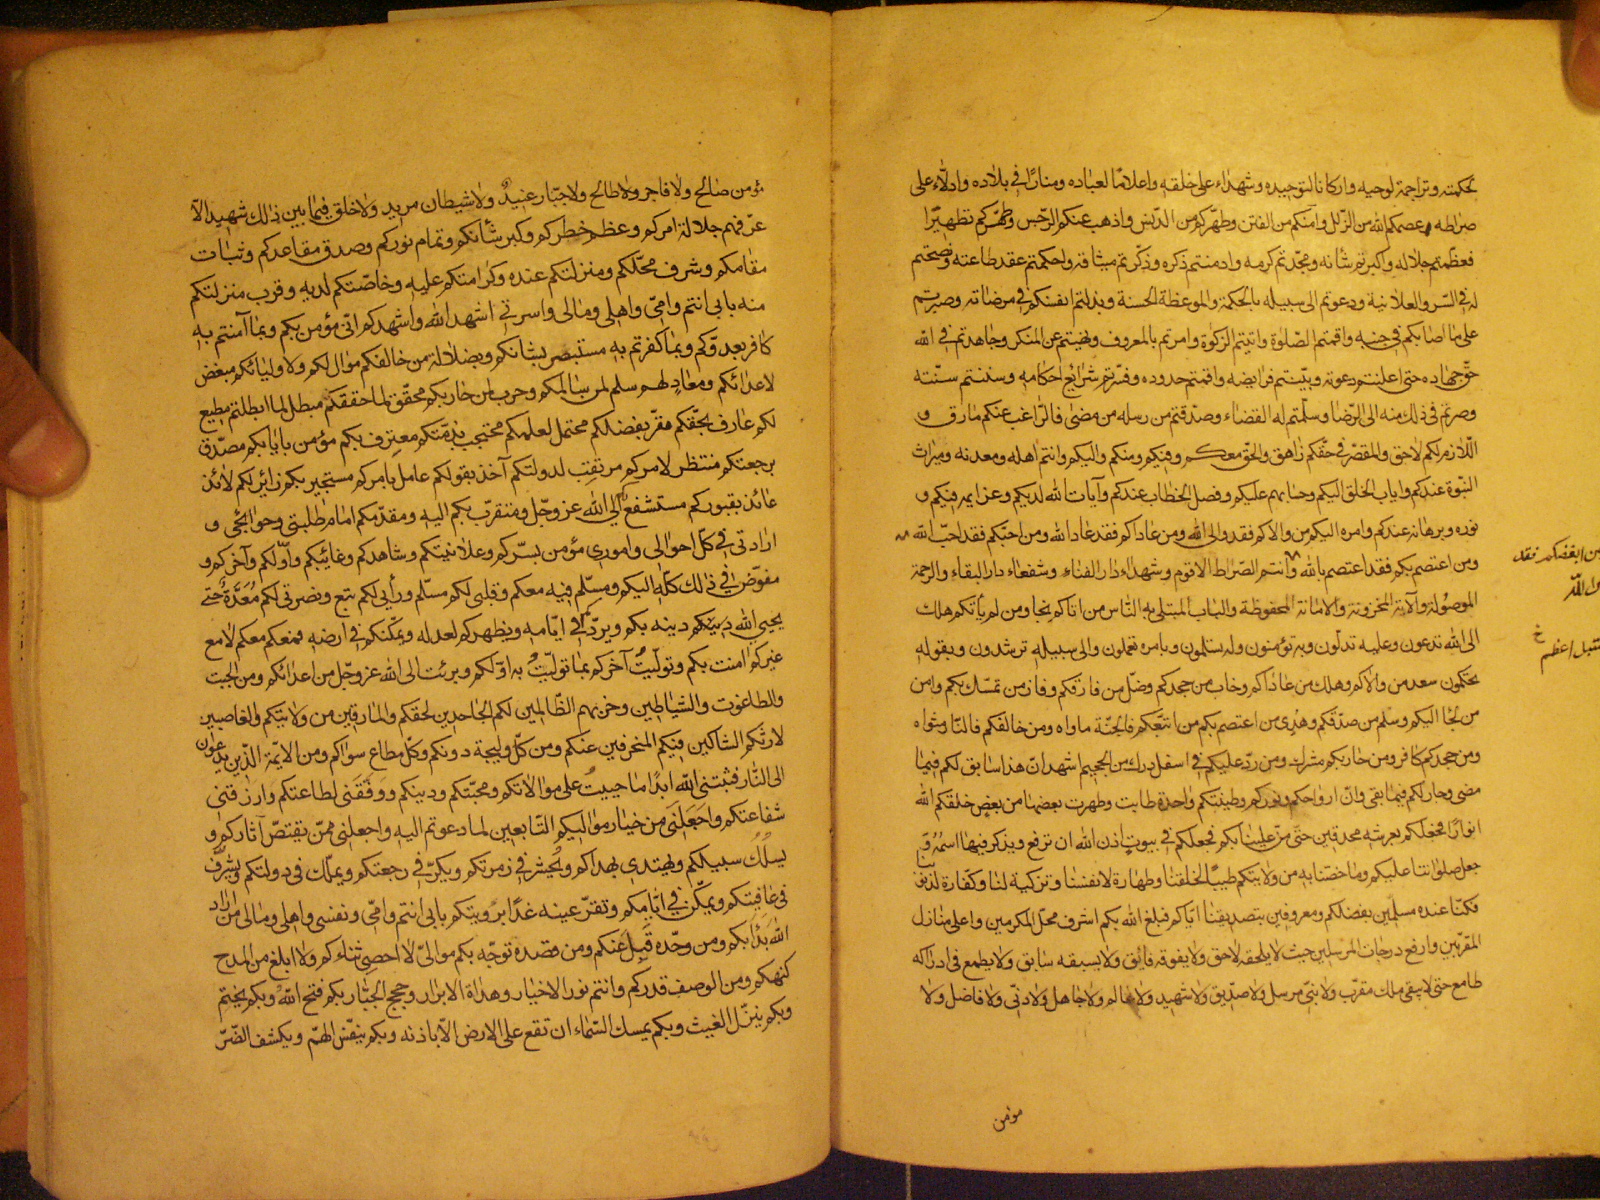 لحكمته وتراجمة لوحيه واركانا لتوحيده وشهداء على خلقه واعلاما لعباده ومنارا في بلاده وادلاء على
صراطه عصمكم الله من الزلل وامنكم من الفتن وطهركم من الدنس واذهب عنكم الرجس وطهركم تطهيرا
فعظمتم جلاله واكبرتم شأنه ومجدتم كرمه وادمنتم ذكره وذكرتم ميثاقه واحكمتم عقد طاعته ونصحتم
له في السر والعلانية ودعوتم الى سبيله بالحكمة والموعظة الحسنة وبذلتم انفسكم في مرضاته وصبرتم
على ما اصابكم في جنبه واقمتم الصلوة واتيتم الزكوة وامرتم بالمعروف ونهيتم عن المنكر وجاهدتم في الله
حق جهاده حتى اعلنتم دعوته وبينتم فرايضه واقمتم حدوده وفسرتم شرائع احكامه وسننتم سنته
وصرتم في ذلك منه الى الرضا وسلمتم له القضاء وصدقتم من رسله من مضى فالراغب عنكم مارق و
اللازم لكم لاحق والمقصر في حقكم زاهق والحق معكم وفيكم ومنكم واليكم وانتم اهله ومعدنه وميراث
النبوة عندكم واياب الخلق اليكم وحسابهم عليكم وفصل الخطاب عندكم وآيات الله لديكم وعزايمه فيكم و
نوره وبرهانه عندكم وامره اليكم من والاكم فقد والى الله ومن عاداكم فقد عاد الله ومن احبكم فقد احب الله
ومن ابغضكم فقد
ومن اعتصم بكم فقد اعتصم بالله وانتم الصراط الاقوم وشهداء دار الفناء وشفعاء دار البقاء والرحمة
الموصولة والآية المخزونة والامانة المحفوظة والباب المبتلى به الناس من اتاكم نجا ومن لم ياتكم هلك
خ
الى الله تدعون وعليه تدلون وبه تؤمنون وله تسلمون وبامره تعملون والى سبيله ترشدون وبقوله
تحكمون سعد من والاكم وهلك من عاداكم وخاب من جحدكم وضل من فارقكم وفاز من تمسك بكم وامن
من لجأ اليكم وسلم من صدقكم وهدي من اعتصم بكم من اتبعكم فالجنة ماواه ومن خالفكم فالنار مثواه
ومن جحدكم كافر ومن حاربكم مشرك ومن رد عليكم في اسفل درك من الجحيم اشهد ان هذا سابق لكم فيما
مضى وجار لكم فيما بقى وان ارواحكم ونوركم وطينتكم واحدة طابت وطهرت بعضها من بعض خلقكم الله
انوارا فجعلكم بعرشه محدقين حتى من علينا بكم فجعلكم في بيوت اذن الله ان ترفع ويذكر فيها اسمه و
جعل صلواتنا عليكم وما خصنا به من ولايتكم طيبا لخلقنا وطهارة لانفسنا وتزكية لنا وكفارة لذنوبنا
فكنا عنده مسلمين بفضلكم ومعروفين بتصديقنا اياكم فبلغ الله بكم اشرف محل المكرمين واعلى منازل
المقربين وارفع درجات المرسلين حيث لا يلحقه لاحق ولا يفوقه فائق ولا يسبقه سابق ولا يطمع في ادراكه
طامع حتى لا يبقى ملك مقرب ولا نبي مرسل ولا صديق ولا شهيد ولا عالم ولا جاهل ولا دني ولا فاضل ولا
مومن
مؤمن صالح ولا فاجر ولا طالح ولا جبار عنيد ولا شيطان مريد ولا خلق فيما بين ذلك شهيد الا
عرفهم جلالة امركم وعظم خطركم وكبر شأنكم وتمام نوركم وصدق مقاعدكم وثبات
مقامكم وشرف محلكم ومنزلتكم عنده وكرامتكم عليه وخاصتكم لديه وقرب منزلتكم
منه بابي انتم وامي واهلي ومالي واسرتي اشهد الله واشهدكم اني مؤمن بكم وبما آمنتم به
كافر بعدوكم وبما كفرتم به مستبصر بشانكم وبضلالة من خالفكم موال لكم ولاوليائكم مبغض
لاعدائكم ومعاد لهم سلم لمن سالمكم وحرب لمن حاربكم محقق لما حققتم مبطل لما ابطلتم مطيع
لكم عارف بحقكم مقر بفضلكم محتمل لعلمكم محتجب بذمتكم معترف بكم مؤمن بايابكم مصدق
برجعتكم منتظر لامركم مرتقب لدولتكم آخذ بقولكم عامل بامركم مستجير بكم زائر لكم لائذ
عائذ بقبوركم مستشفع الى الله عز وجل ومتقرب بكم اليه ومقدمكم امام طلبتي وحوائجي و
ارادتي في كل احوالي واموري مؤمن بسركم وعلانيتكم وشاهدكم وغائبكم واولكم وآخركم و
مفوض في ذلك كله اليكم ومسلم فيه معكم وقلبي لكم مسلم ورأيي لكم تبع ونصرتي لكم معدة حتى
يحيي الله دينه بكم ويردكم في ايامه ويظهركم لعدله ويمكنكم في ارضه فمعكم معكم لا مع
غيركم امنت بكم وتوليت آخركم بما توليت به اولكم وبرئت الى الله عز وجل من اعدائكم ومن الجبت
والطاغوت والشياطين وحزبهم الظالمين لكم الجاحدين لحقكم والمارقين من ولايتكم والغاصبين
لارثكم الشاكين فيكم المنحرفين عنكم ومن كل وليجة دونكم وكل مطاع سواكم ومن الايمة الذين يدعون
الى النار فثبتني الله ابدا ما حييت على موالاتكم ومحبتكم ودينكم ووفقني لطاعتكم وارزقني
شفاعتكم واجعلني من خيار مواليكم التابعين لما دعوتم اليه واجعلني ممن يقتص آثاركم و
يسلك سبيلكم ويهتدي بهداكم ويحشر في زمرتكم ويكر في رجعتكم ويملك في دولتكم ويشرف
في عافيتكم ويمكن في ايامكم وتقر عينه غدا برؤيتكم بابي انتم وامي ونفسي واهلي ومالي من اراد
الله بدأ بكم ومن وحده قبل عنكم ومن قصده توجه بكم موالي لا احصي ثناءكم ولا ابلغ من المدح
كنهكم ومن الوصف قدركم وانتم نور الاخيار وهداة الابرار وحجج الجبار بكم فتح الله وبكم يختم
وبكم ينزل الغيث وبكم يمسك السماء ان تقع على الارض الا باذنه وبكم ينفس الهم ويكشف الضر